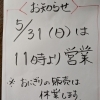 お知らせ
5/31(日)は
11時より営業
※おにぎりの販売は
休業します